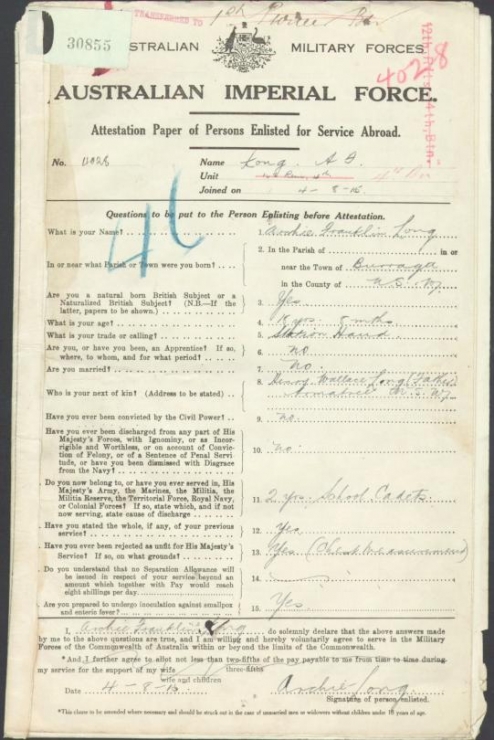 TRANSFERRED TO
30855
AUSTRALIAN MILITARY FORCES
4028
AUSTRALIAN IMPERIAL FORCE.
Attestation Paper of Persons Enlisted for Service Abroad.
No. 4028 Name Long. A F.
Unit
Joined on 4-8-16
Questions to be put to the Person Enlisting before Attestation.
What is your Name? 1. Archie Franklin Long
In or near what Parish or Town were you born? 2. In the Parish of in or
near the Town of Burraga
in the County of N.S.W.
Are you a natural born British Subject or a
Naturalized British Subject? (N.B.—If the
latter, papers to be shown.) 3. Yes
What is your age? 4.
What is your trade or calling? 5. Station Hand
Are you, or have you been, an Apprentice? If so,
where, to whom, and for what period? 6. No
Are you married? 7. No.
Who is your next of kin? (Address to be stated) 8. Henry Wallace Long (Father)
N.S.W.
Have you ever been convicted by the Civil Power? 9. No.
Have you ever been discharged from any part of His
Majesty's Forces, with Ignominy, or as Incor-
rigible and Worthless, or on account of Convic-
tion of Felony, or of a Sentence of Penal Servi-
tude, or have you been dismissed with Disgrace
from the Navy? 10. No
Do you now belong to, or have you ever served in, His
Majesty's Army, the Marines, the Militia, the
Militia Reserve, the Territorial Force, Royal Navy,
or Colonial Forces? If so, state which, and if not
now serving, state cause of discharge 11. 2 yrs. School Cadets
Have you stated the whole, if any, of your previous
service? 12. Yes
Have you ever been rejected as unfit for His Majesty's
Service? If so, on what grounds? 13. Yes. (Chest measurement)
Do you understand that no Separation Allowance will
be issued in respect of your service beyond an
amount which together with Pay would reach
eight shillings per day. 14.
Are you prepared to undergo inoculation against smallpox
and enteric fever? 15. Yes
I, Archie Franklin Long do solemnly declare that the above answers made
by me to the above questions are true, and I am willing and hereby voluntarily agree to serve in the Military
Forces of the Commonwealth of Australia within or beyond the limits of the Commonwealth.
*And I further agree to allot not less than two-fifths of the pay payable to me from time to time during
three-fifths
my service for the support of my wife
wife and children
Date 4-8-16. Archie Long.
Signature of person enlisted.
*This clause to be amended where necessary and should be struck out in the case of unmarried men or widowers without children under 18 years of age.